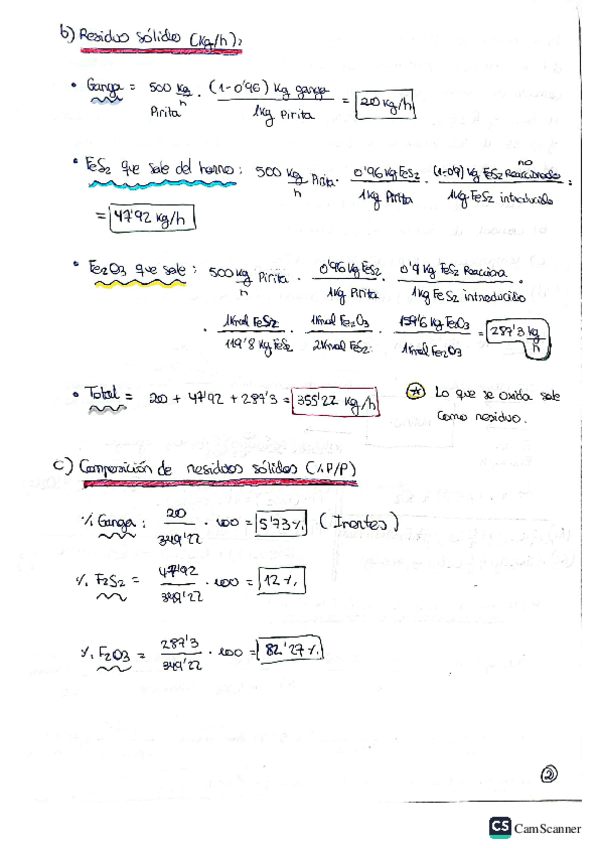 b) Residuo sólido (Kg/h):
• Ganga = 500 Kg/h Pirita · (1-0'96) Kg ganga / 1Kg Pirita = 20 Kg/h
• FeS2 que sale del horno: 500 Kg/h Pirita · 0'96 Kg FeS2 / 1Kg Pirita · (1-0'9) Kg FeS2 no Reaccionado / 1Kg FeS2 introducido =
= 47'92 Kg/h
• Fe2O3 que sale: 500 Kg/h Pirita · 0'96 Kg FeS2 / 1Kg Pirita · 0'9 Kg FeS2 Reacciona / 1Kg FeS2 introducido ·
· 1Kmol FeS2 / 119'8 Kg FeS2 · 1Kmol Fe2O3 / 2Kmol FeS2 · 159'6 Kg Fe2O3 / 1Kmol Fe2O3 = 287'3 Kg/h
• Total = 20 + 47'92 + 287'3 = 355'22 Kg/h
Lo que se oxida sale
como residuo.
c) Composición de residuos sólidos (% P/P)
% Ganga: 20 / 349'22 · 100 = 5'73% (Inertes)
% F2S2 = 47'92 / 349'22 · 100 = 12%
% F2O3 = 287'3 / 349'22 · 100 = 82'27%
2
CS CamScanner